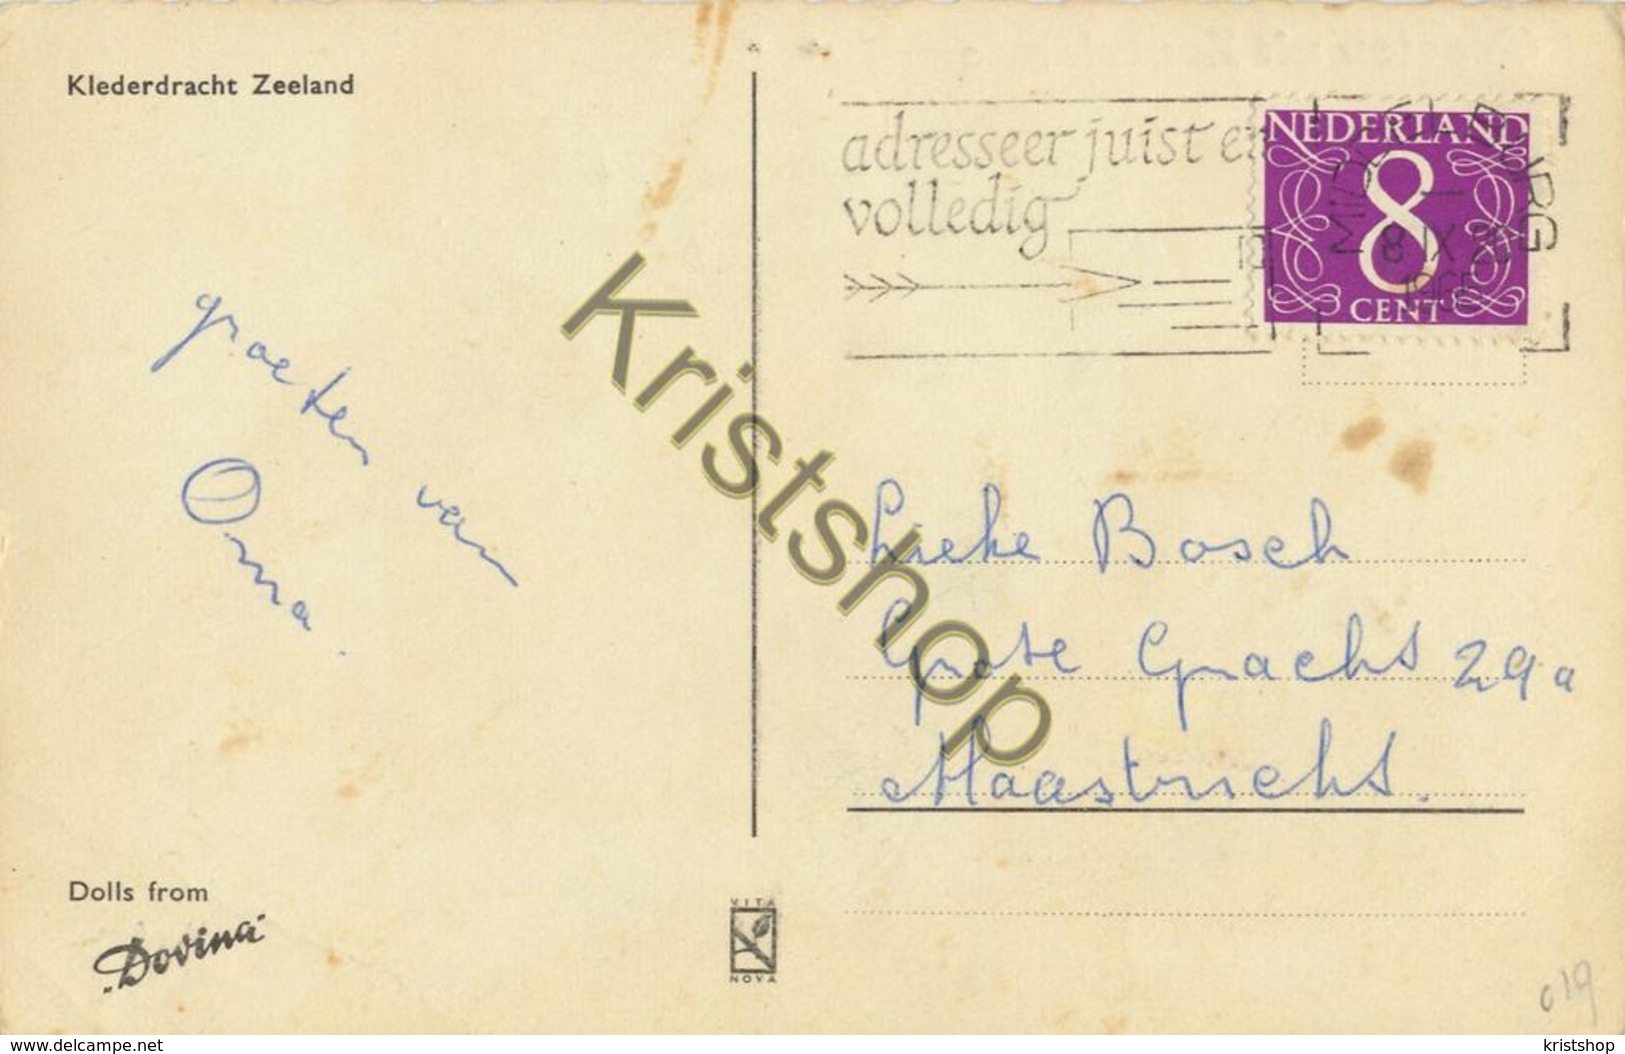 Klederdracht Zeeland
adresseer juist en
volledig
NEDERLAND
8
CENT
MIDDELBURG
8 IX
196
groeten van
Oma.
Lieke Bosch
Grote Gracht 29a
Maastricht.
Kristshop
Dolls from
"Dovina"
VITA
NOVA
019
www.delcampe.net
kristshop